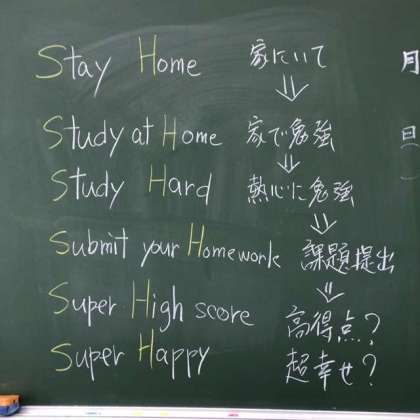 Stay Home 家にいて
⇓
Study at Home 家で勉強
⇓
Study Hard 熱心に勉強
⇓
Submit your Homework 課題提出
⇓
Super High score 高得点?
Super Happy 超幸せ?
月
日